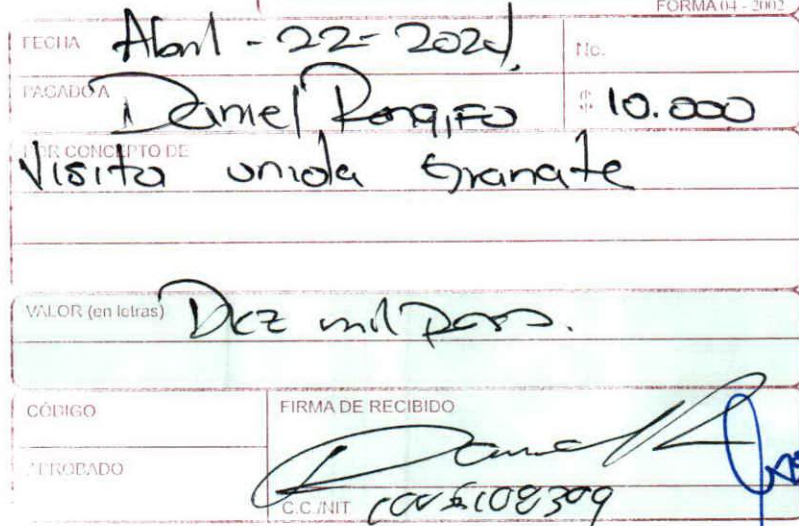 FORMA 04 - 2002
FECHA Abril - 22 - 2024 No.
PAGADO A Daniel Rengifo $ 10.000
POR CONCEPTO DE
Visita Granate
VALOR (en letras) Diez mil pesos.
CÓDIGO FIRMA DE RECIBIDO
APROBADO
C.C./NIT